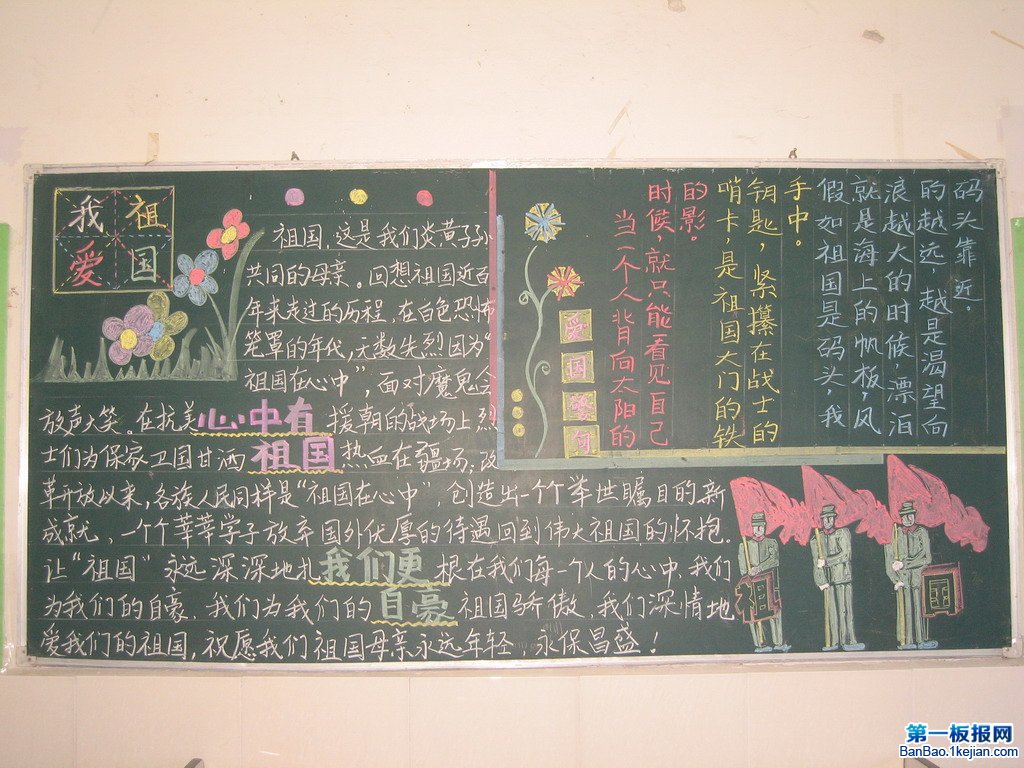 我爱
祖国
祖国，这是我们炎黄子孙
共同的母亲。回想祖国近百
年来走过的历程，在白色恐怖
笼罩的年代，无数先烈因为“
祖国在心中”，面对魔鬼会
放声大笑。在抗美 援朝的战场上，烈
士们为保家卫国甘洒 热血在疆场；改
心中有
祖国
革开放以来，各族人民同样是“祖国在心中”，创造出一个个举世瞩目的新
成就，一个个莘莘学子放弃国外优厚的待遇回到伟大祖国的怀抱。
让“祖国”永远深深地扎 根在我们每一个人的心中，我们
为我们的自豪，我们为我们的 祖国骄傲，我们深情地
我们更
自豪
爱我们的祖国，祝愿我们祖国母亲永远年轻 永保昌盛！
爱国警句
当一个人背向太阳的
时候，就只能看见自己
的影。
哨卡，是祖国大门的铁
钥匙，紧攥在战士的
手中。
假如祖国是码头，我
就是海上的帆板，风
浪越大的时候，漂泊
的越远，越是渴望向
码头靠近。
祖
第一板报网
BanBao.1kejian.com